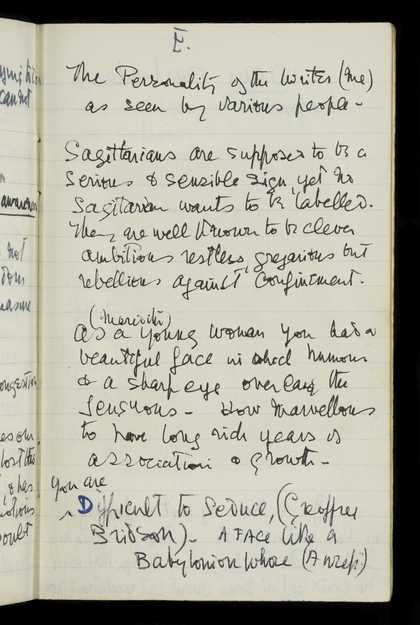 E.
The Personality of the Writer (me)
as seen by various people -
Sagittarians are supposed to be a
serious & sensible sign, yet no
Sagitarian wants to be labelled.
They are well known to be clever
ambitious restless, gregarious but
rebellious against confinement.
As a young woman you had a
beautiful face in which humour
& a sharp eye overlay the
sensuous - How marvellous
to have long rich years of
association & growth -
You are
Difficult to seduce, (Geoffrey
Bridson) - A face like a
Babylonian whore (Anrep)